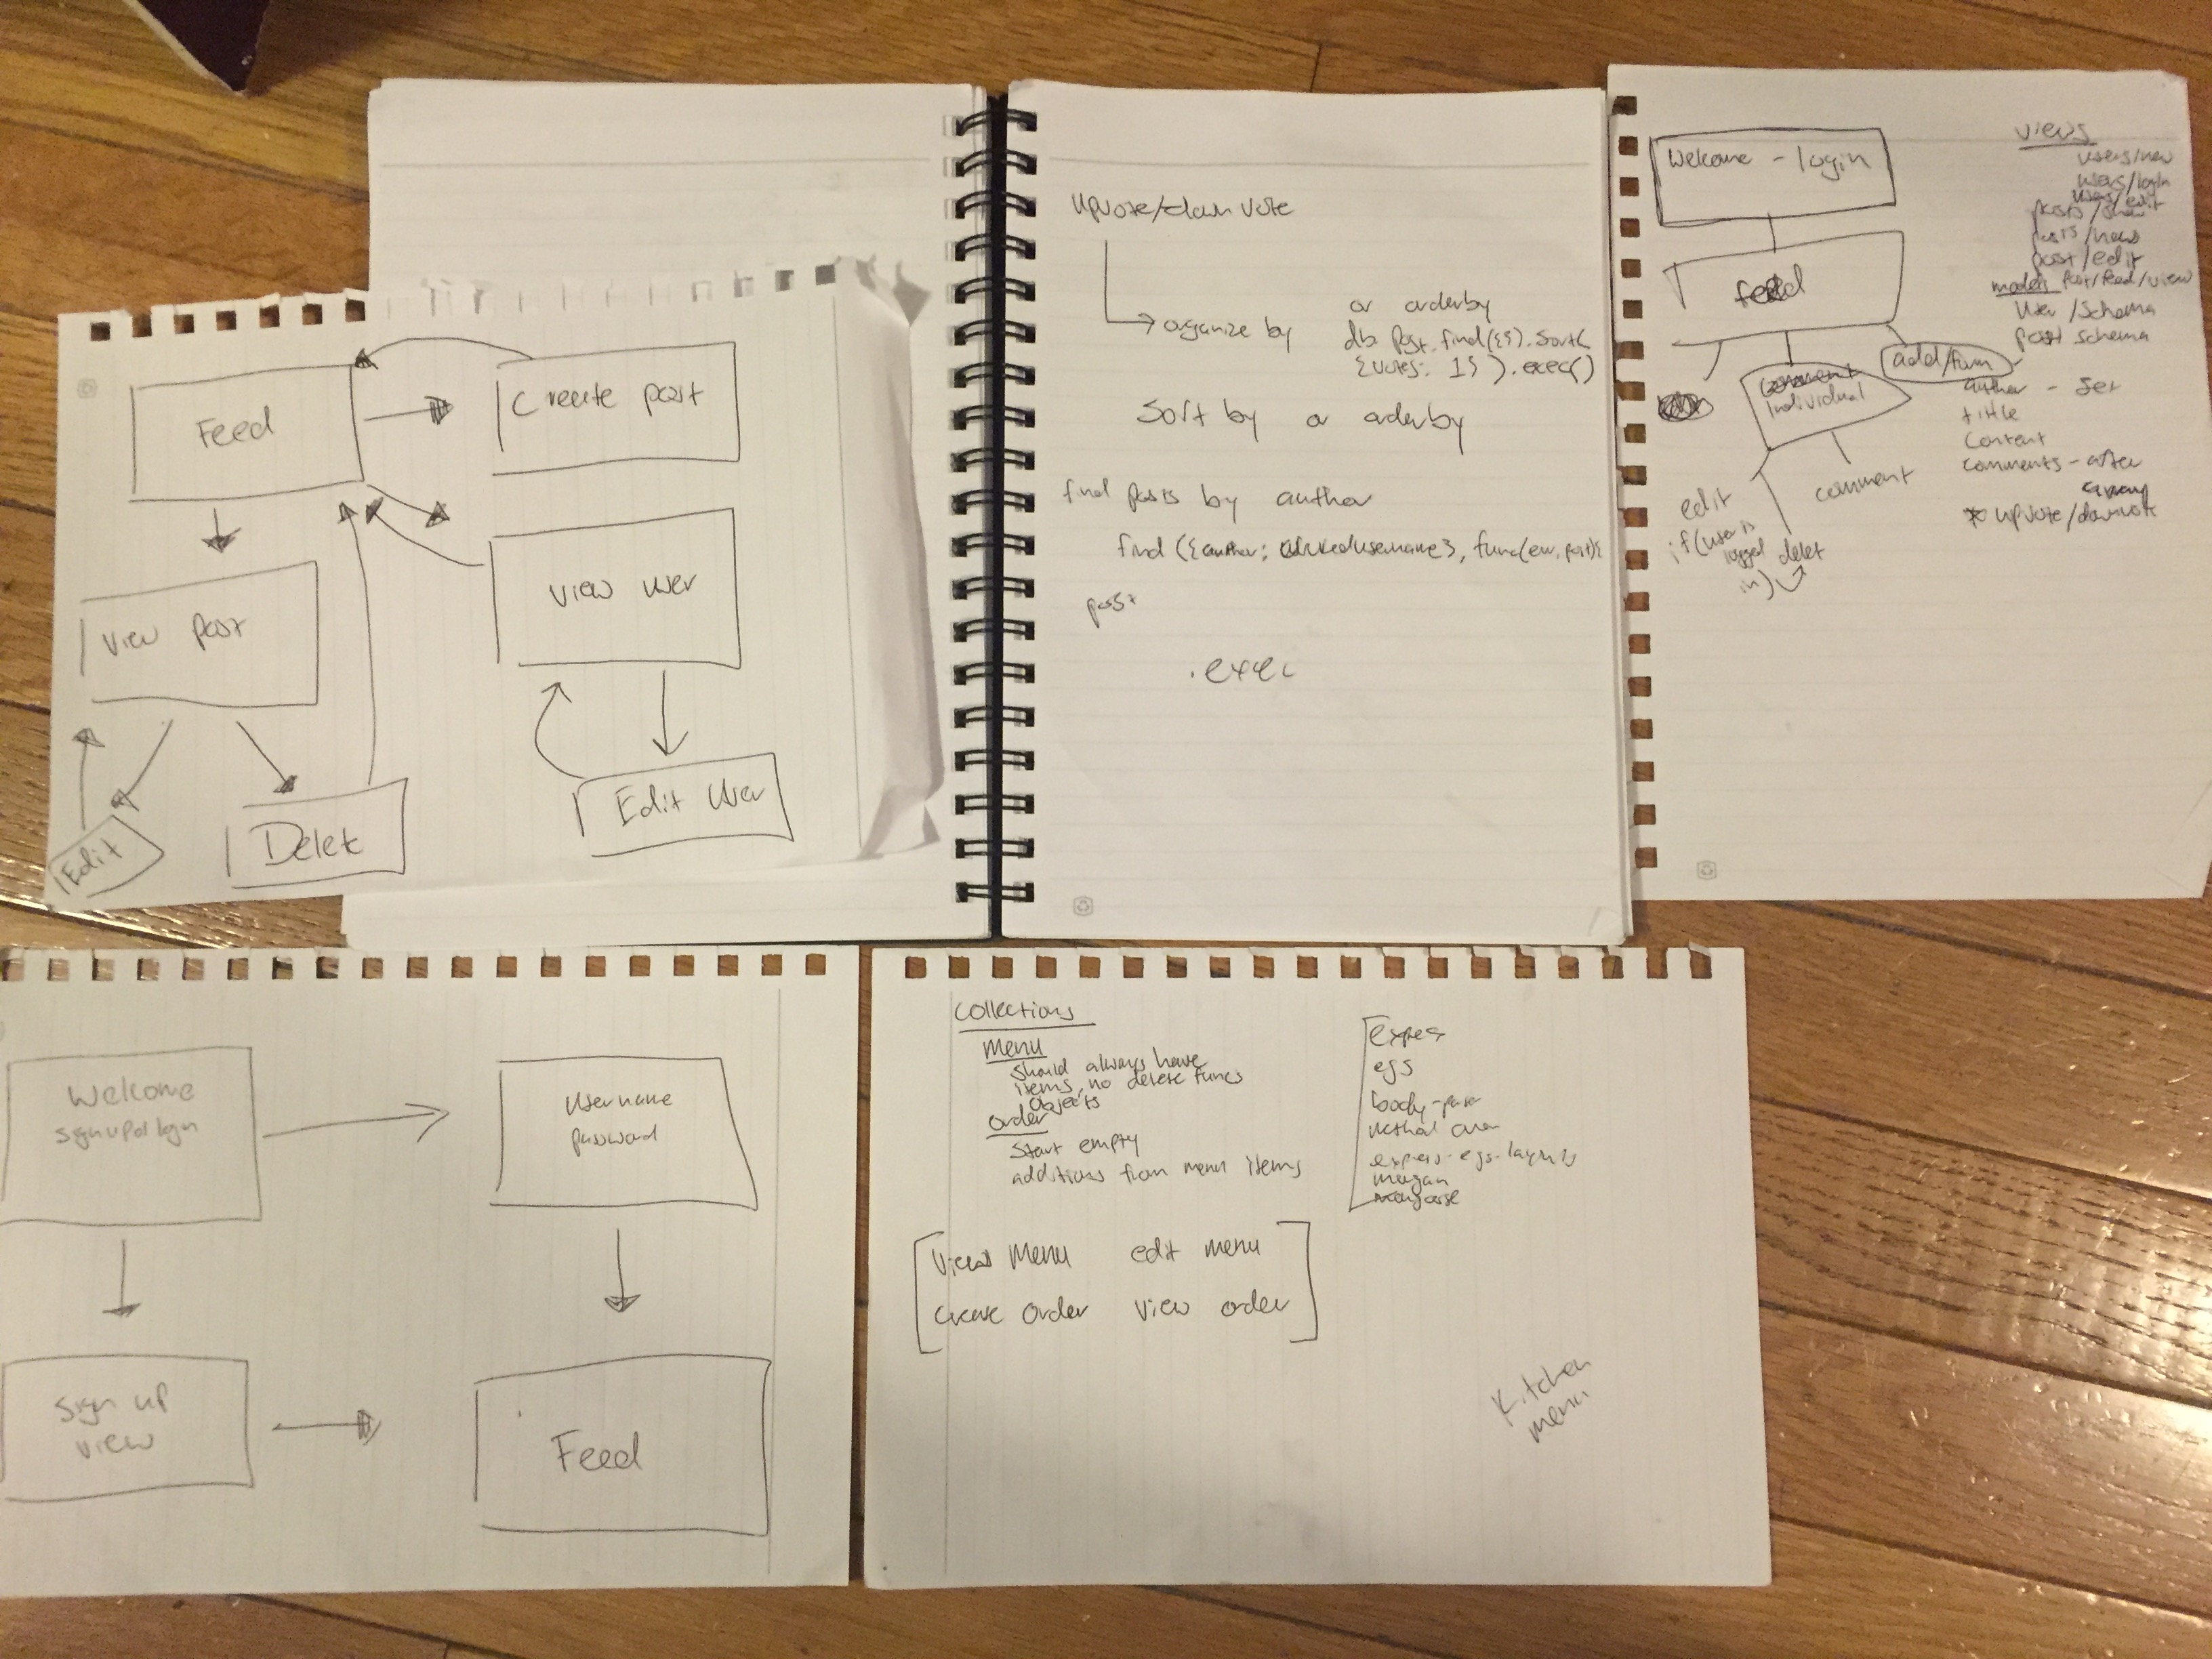 Feed
Create post
View post
View user
Edit
Delete
Edit User
upvote/downvote
organize by
or orderby
db. Post.find({}).sort(
{votes: 1}).exec()
Sort by or orderby
find posts by author
find ({author: clickedusername}, func(err, post){
post
.exec
Welcome - login
feed
add/form
comment
Individual
edit
if(user is
logged
in)
delet
comment
views
users/new
users/login
users/edit
posts/show
posts/new
post/edit
models Post/feed/view
User /Schema
post schema
author -
title
Content
comments - after
array
* upvote/downvote
Welcome
signup or login
username
password
Sign up
view
Feed
Collections
menu
should always have
items, no delete funcs
objects
order
Start empty
additions from menu items
View Menu edit menu
Create Order View order
express
ejs
body-parser
method over
express-ejs-layouts
morgan
mongoose
Kitchen
menu